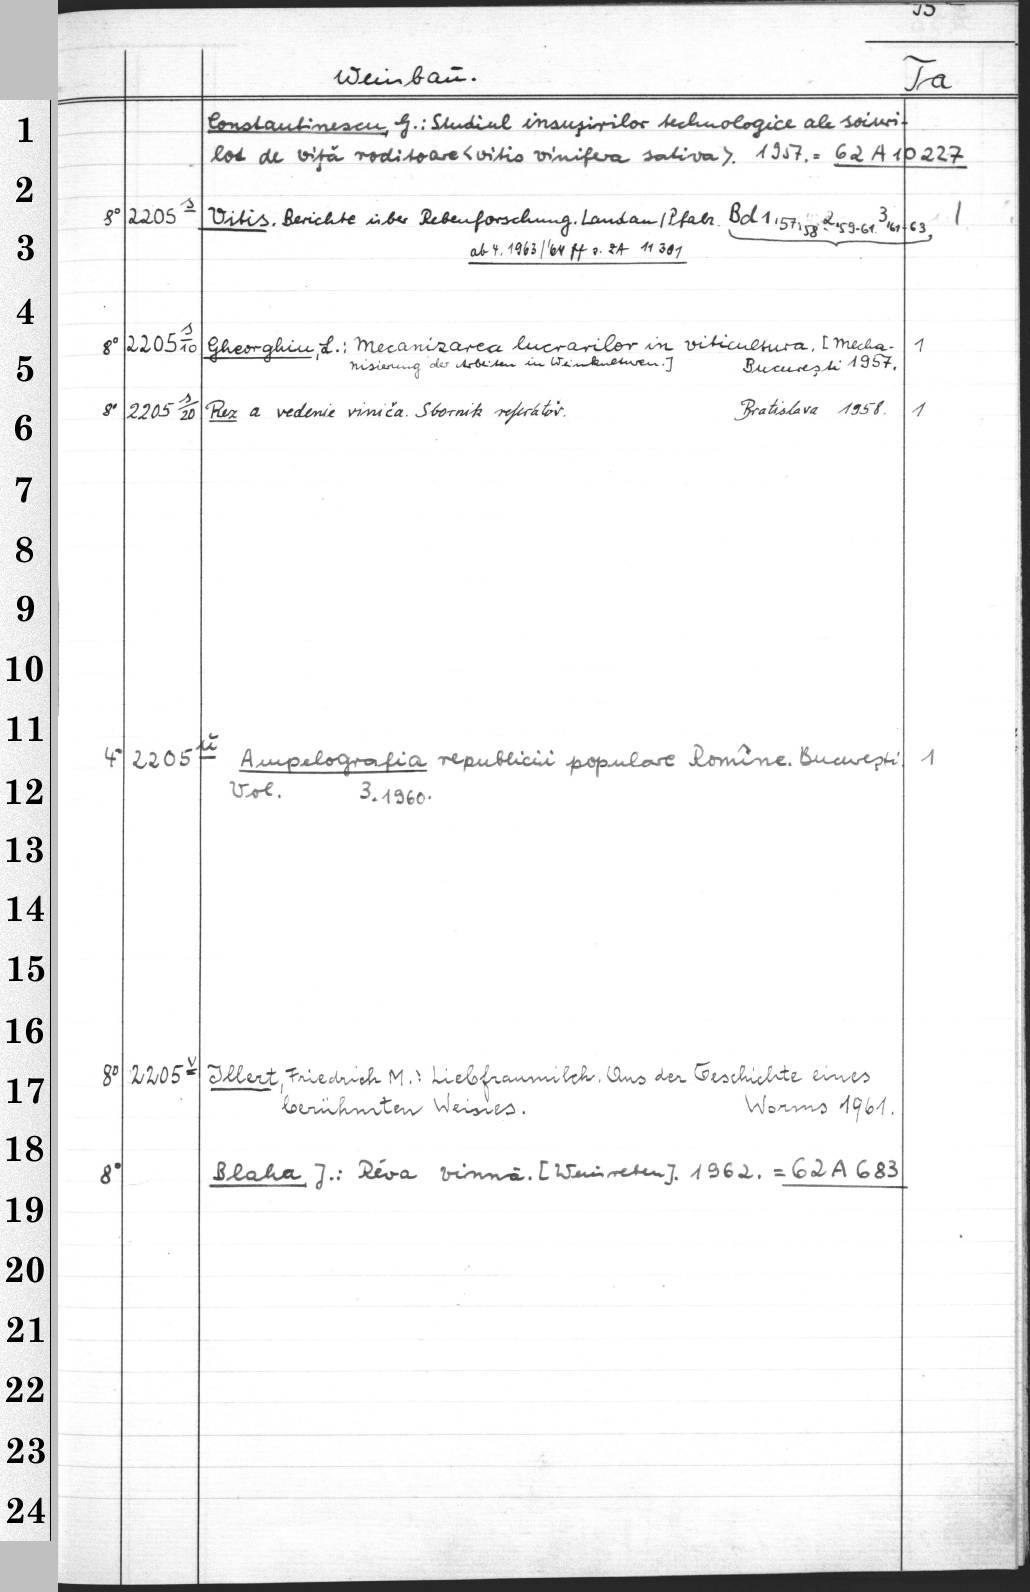 Weinbau. Ta
1
Constantinescu, G.: Studiul insuşirilor technologice ale soiuri-
lot de viţă roditoare <vitis vinifera sativa>. 1957. = 62 A 10 227
2
8° 2205 s Vitis. Berichte über Rebenforschung. Landau/Pfalz. Bd 1,'57,'58 2,'59-61. 3,'61-63, 1
3
ab 4. 1963/'64 ff s. ZA 11 381
4
8° 2205 s/10 Gheorghiu, L.: Mecanizarea lucrarilor in viticultura. [Mecha- 1
5
nisierung der Arbeiten in Weinkulturen.] Bucureşti 1957.
8° 2205 s/20 Rez a vedenie viniča. Sbornik referátov. Bratislava 1958. 1
6
7
8
9
10
11
4° 2205 u Ampelografia republicii populare Romîne. Bucureşti. 1
12
Vol. 3.1960.
13
14
15
16
8° 2205 v Illert, Friedrich M.: Liebfraumilch. Aus der Geschichte eines
17
berühmten Weines. Worms 1961.
18
8° Blaha, J.: Réva vinná. [Weinreben]. 1962. = 62 A 683
19
20
21
22
23
24